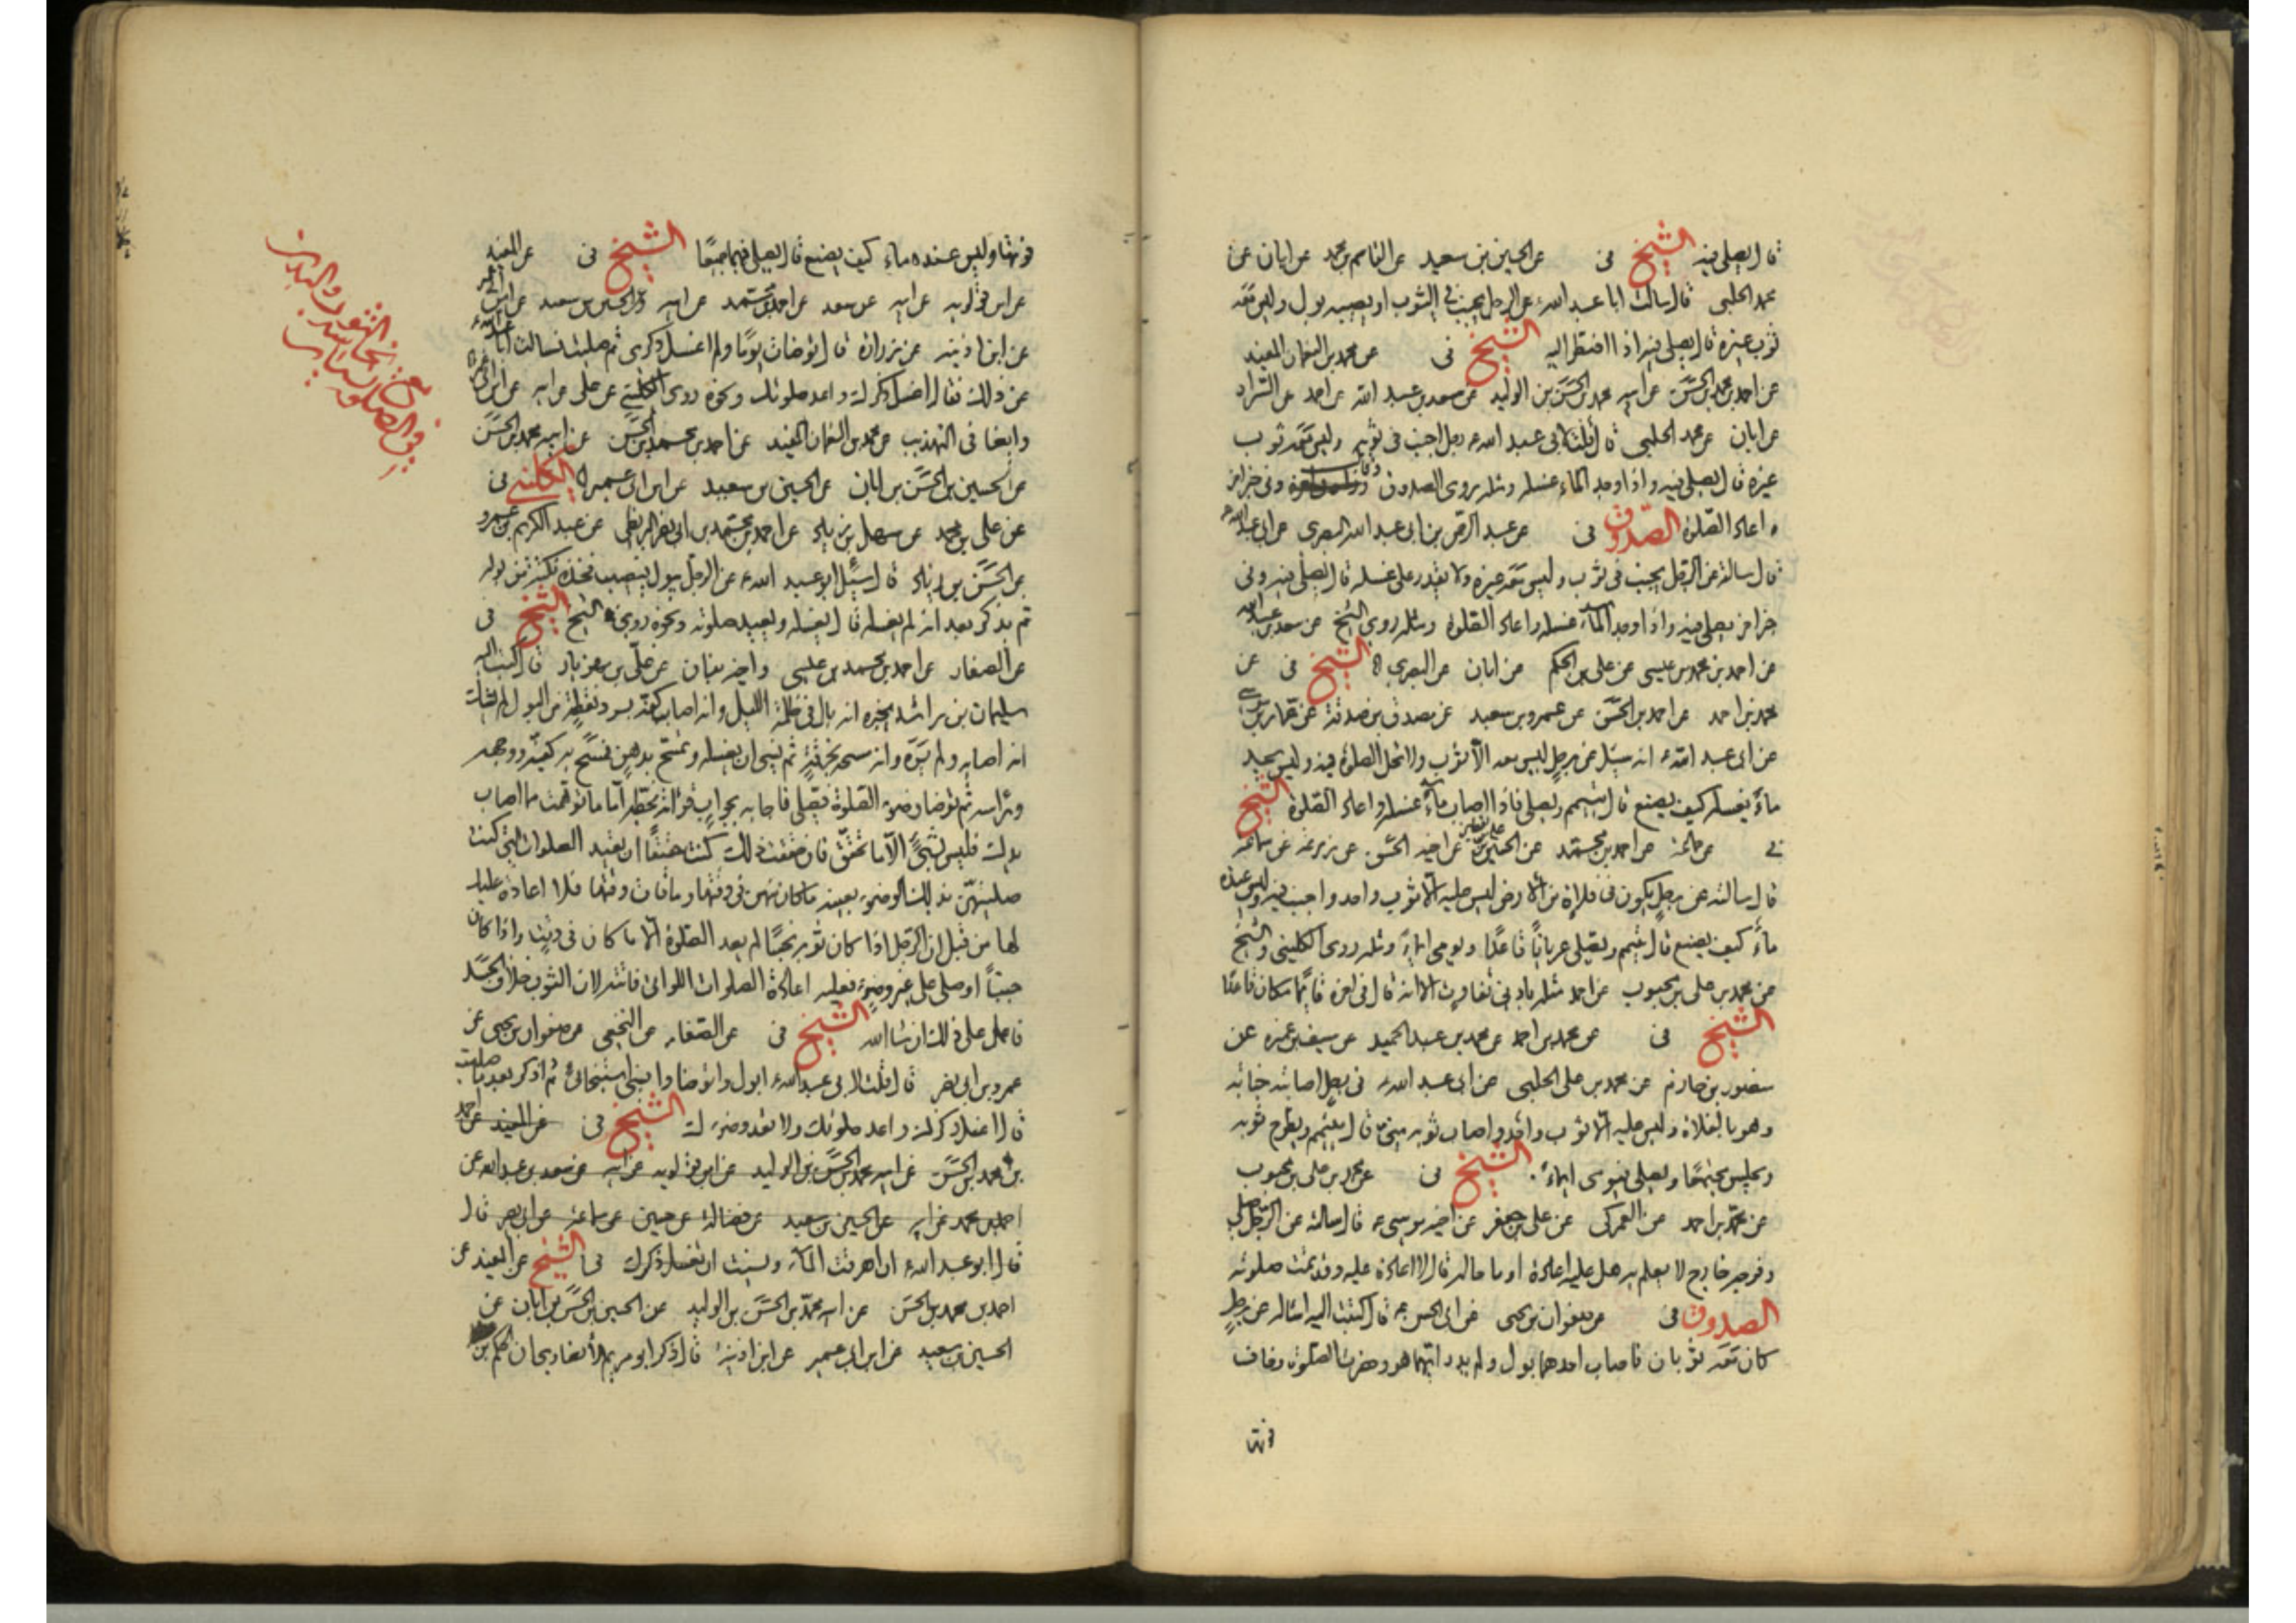 قال يصلي فيه الشيخ في عن الحسين بن سعيد عن القاسم بن محمد عن ابان عن
محمد الحلبي قال سالت ابا عبد الله ع عن الرجل يجنب في الثوب او يصيبه بول وليس معه
ثوب غيره قال يصلي فيه اذا اضطر اليه الشيخ في عن محمد بن النعمان المفيد
عن احمد بن محمد بن الحسن عن ابيه محمد بن الحسن بن الوليد عن سعد بن عبد الله عن احمد عن السراد
عن ابان عن محمد الحلبي قال قلت لابي عبد الله ع رجل اجنب في ثوبه وليس معه ثوب
غيره قال يصلي فيه واذا وجد الماء غسله ومثله روى الصدوق وفي خبر اخر
و اعاد الصلوة الصدوق في عن عبد الرحمن بن ابي عبد الله البصري عن ابي عبد الله ع
قال سالته عن الرجل يجنب في ثوب وليس معه غيره ولا يقدر على غسله قال يصلي فيه وفي
خبر اخر يصلي فيه واذا وجد الماء غسله واعاد الصلوة ومثله روى الشيخ عن سعد بن عبد الله
عن احمد بن محمد بن عيسى عن علي بن الحكم عن ابان عن البصري الشيخ في عن
محمد بن احمد عن احمد بن الحسن عن عمرو بن سعيد عن مصدق بن صدقة عن عمار بن موسى
عن ابي عبد الله ع انه سئل عن رجل ليس معه الا ثوب ولا تحل الصلوة فيه وليس يجد
ماء يغسله كيف يصنع قال يتيمم ويصلي فاذا اصاب ماء غسله واعاد الصلوة الشيخ
في عن جماعة عن احمد بن محمد عن الحسين عن اخيه الحسن عن زرعة عن سماعة
قال سالته عن رجل يكون في فلاة من الارض ليس عليه الا ثوب واحد واجنب فيه وليس عنده
ماء كيف يصنع قال يتيمم ويصلي عريانا قاعدا ويومي ايماء ومثله روى الكليني والشيخ
عن محمد بن علي بن محبوب عن احمد مثله بادنى تفاوت الا انه قال في اخره قائما مكان قاعدا
الشيخ في عن محمد بن احمد عن محمد بن عبد الحميد عن سيف بن عميرة عن
منصور بن حازم عن محمد بن علي الحلبي عن ابي عبد الله ع في رجل اصابته جنابة
وهو بالفلاة وليس عليه الا ثوب واحد واصاب ثوبه مني قال يتيمم ويطرح ثوبه
ويجلس مجتمعا ويصلي فيومي ايماء الشيخ في عن محمد بن علي بن محبوب
عن محمد بن احمد عن العمركي عن علي بن جعفر عن اخيه موسى ع قال سالته عن الرجل صلى
وفرجه خارج لا يعلم به هل عليه اعادة او ما حاله قال لا اعادة عليه وقد تمت صلوته
الصدوق في عن صفوان بن يحيى عن ابي الحسن ع قال كتبت اليه اساله عن رجل
كان معه ثوبان فاصاب احدهما بول ولم يدر ايهما هو وحضرت الصلوة وخاف
فوتها
فوتها وليس عنده ماء كيف يصنع قال يصلي فيهما جميعا الشيخ في عن المفيد
عن ابن قولويه عن ابيه عن سعد عن احمد بن محمد عن ابيه والحسين بن سعيد عن ابن ابي عمير
عن ابن اذينه عن زرارة قال توضات يوما ولم اغسل ذكري ثم صليت فسالت ابا عبد الله ع
عن ذلك فقال اغسل ذكرك واعد صلوتك ونحوه روى الكليني عن علي عن ابيه عن ابن ابي عمير
وايضا في التهذيب عن محمد بن النعمان المفيد عن احمد بن محمد بن الحسن عن ابيه محمد بن الحسن
عن الحسين بن الحسن بن ابان عن الحسين بن سعيد عن ابن ابي عمير الكليني في
عن علي بن محمد عن سهل بن زياد عن احمد بن محمد بن ابي نصر البزنطي عن عبد الكريم بن عمرو
عن الحسن بن زياد قال سئل ابو عبد الله ع عن الرجل يبول فيصيب فخذه نكتة من بوله
ثم يذكر بعد انه لم يغسله قال يغسله ويعيد صلوته ونحوه روى الشيخ الشيخ في
عن الصفار عن احمد بن محمد بن عيسى واخيه بنان عن علي بن مهزيار قال كتب اليه
سليمان بن راشد يخبره انه بال في ظلمة الليل وانه اصاب كفه برد نقطة من البول لم يشك
انه اصابه ولم يره وانه مسحه بخرقة ثم نسي ان يغسله وتمسح بدهن فمسح به كفيه ووجهه
وراسه ثم توضا وضوء الصلوة فصلى فاجابه بجواب قراته بخطه اما ما توهمت مما اصاب
يدك فليس بشيء الا ما تحقق فان حققت ذلك كنت حقيقا ان تعيد الصلوات التي كنت
صليتهن بذلك الوضوء بعينه ما كان منهن في وقتها وما فات وقتها فلا اعادة عليك
لها من قبل ان الرجل اذا كان ثوبه نجسا لم يعد الصلوة الا ما كان في وقت واذا كان
جنبا او صلى على غير وضوء فعليه اعادة الصلوات اللواتي فاتته لان الثوب خلاف الجسد
فاعمل على ذلك ان شاء الله الشيخ في عن الصفار عن النخعي عن صفوان بن يحيى عن
عمرو بن ابي نصر قال قلت لابي عبد الله ع ابول واتوضا وانسى استنجائي ثم اذكر بعد ما صليت
قال اغسل ذكرك واعد صلوتك ولا تعد وضوءك الشيخ في عن المفيد عن احمد
بن محمد بن الحسن عن ابيه محمد بن الحسن بن الوليد عن ابن قولويه عن ابيه عن سعد بن عبد الله عن
احمد بن محمد عن ابيه عن الحسين بن سعيد عن فضالة عن حسين عن سماعة عن ابي بصير قال
قال ابو عبد الله ع ان اهرقت الماء ونسيت ان تغسل ذكرك في الشيخ عن المفيد عن
احمد بن محمد بن الحسن عن ابيه محمد بن الحسن بن الوليد عن الحسين بن الحسن بن ابان عن
الحسين بن سعيد عن ابن ابي عمير عن ابن اذينة قال ذكر ابو مريم الانصاري ان الحكم بن